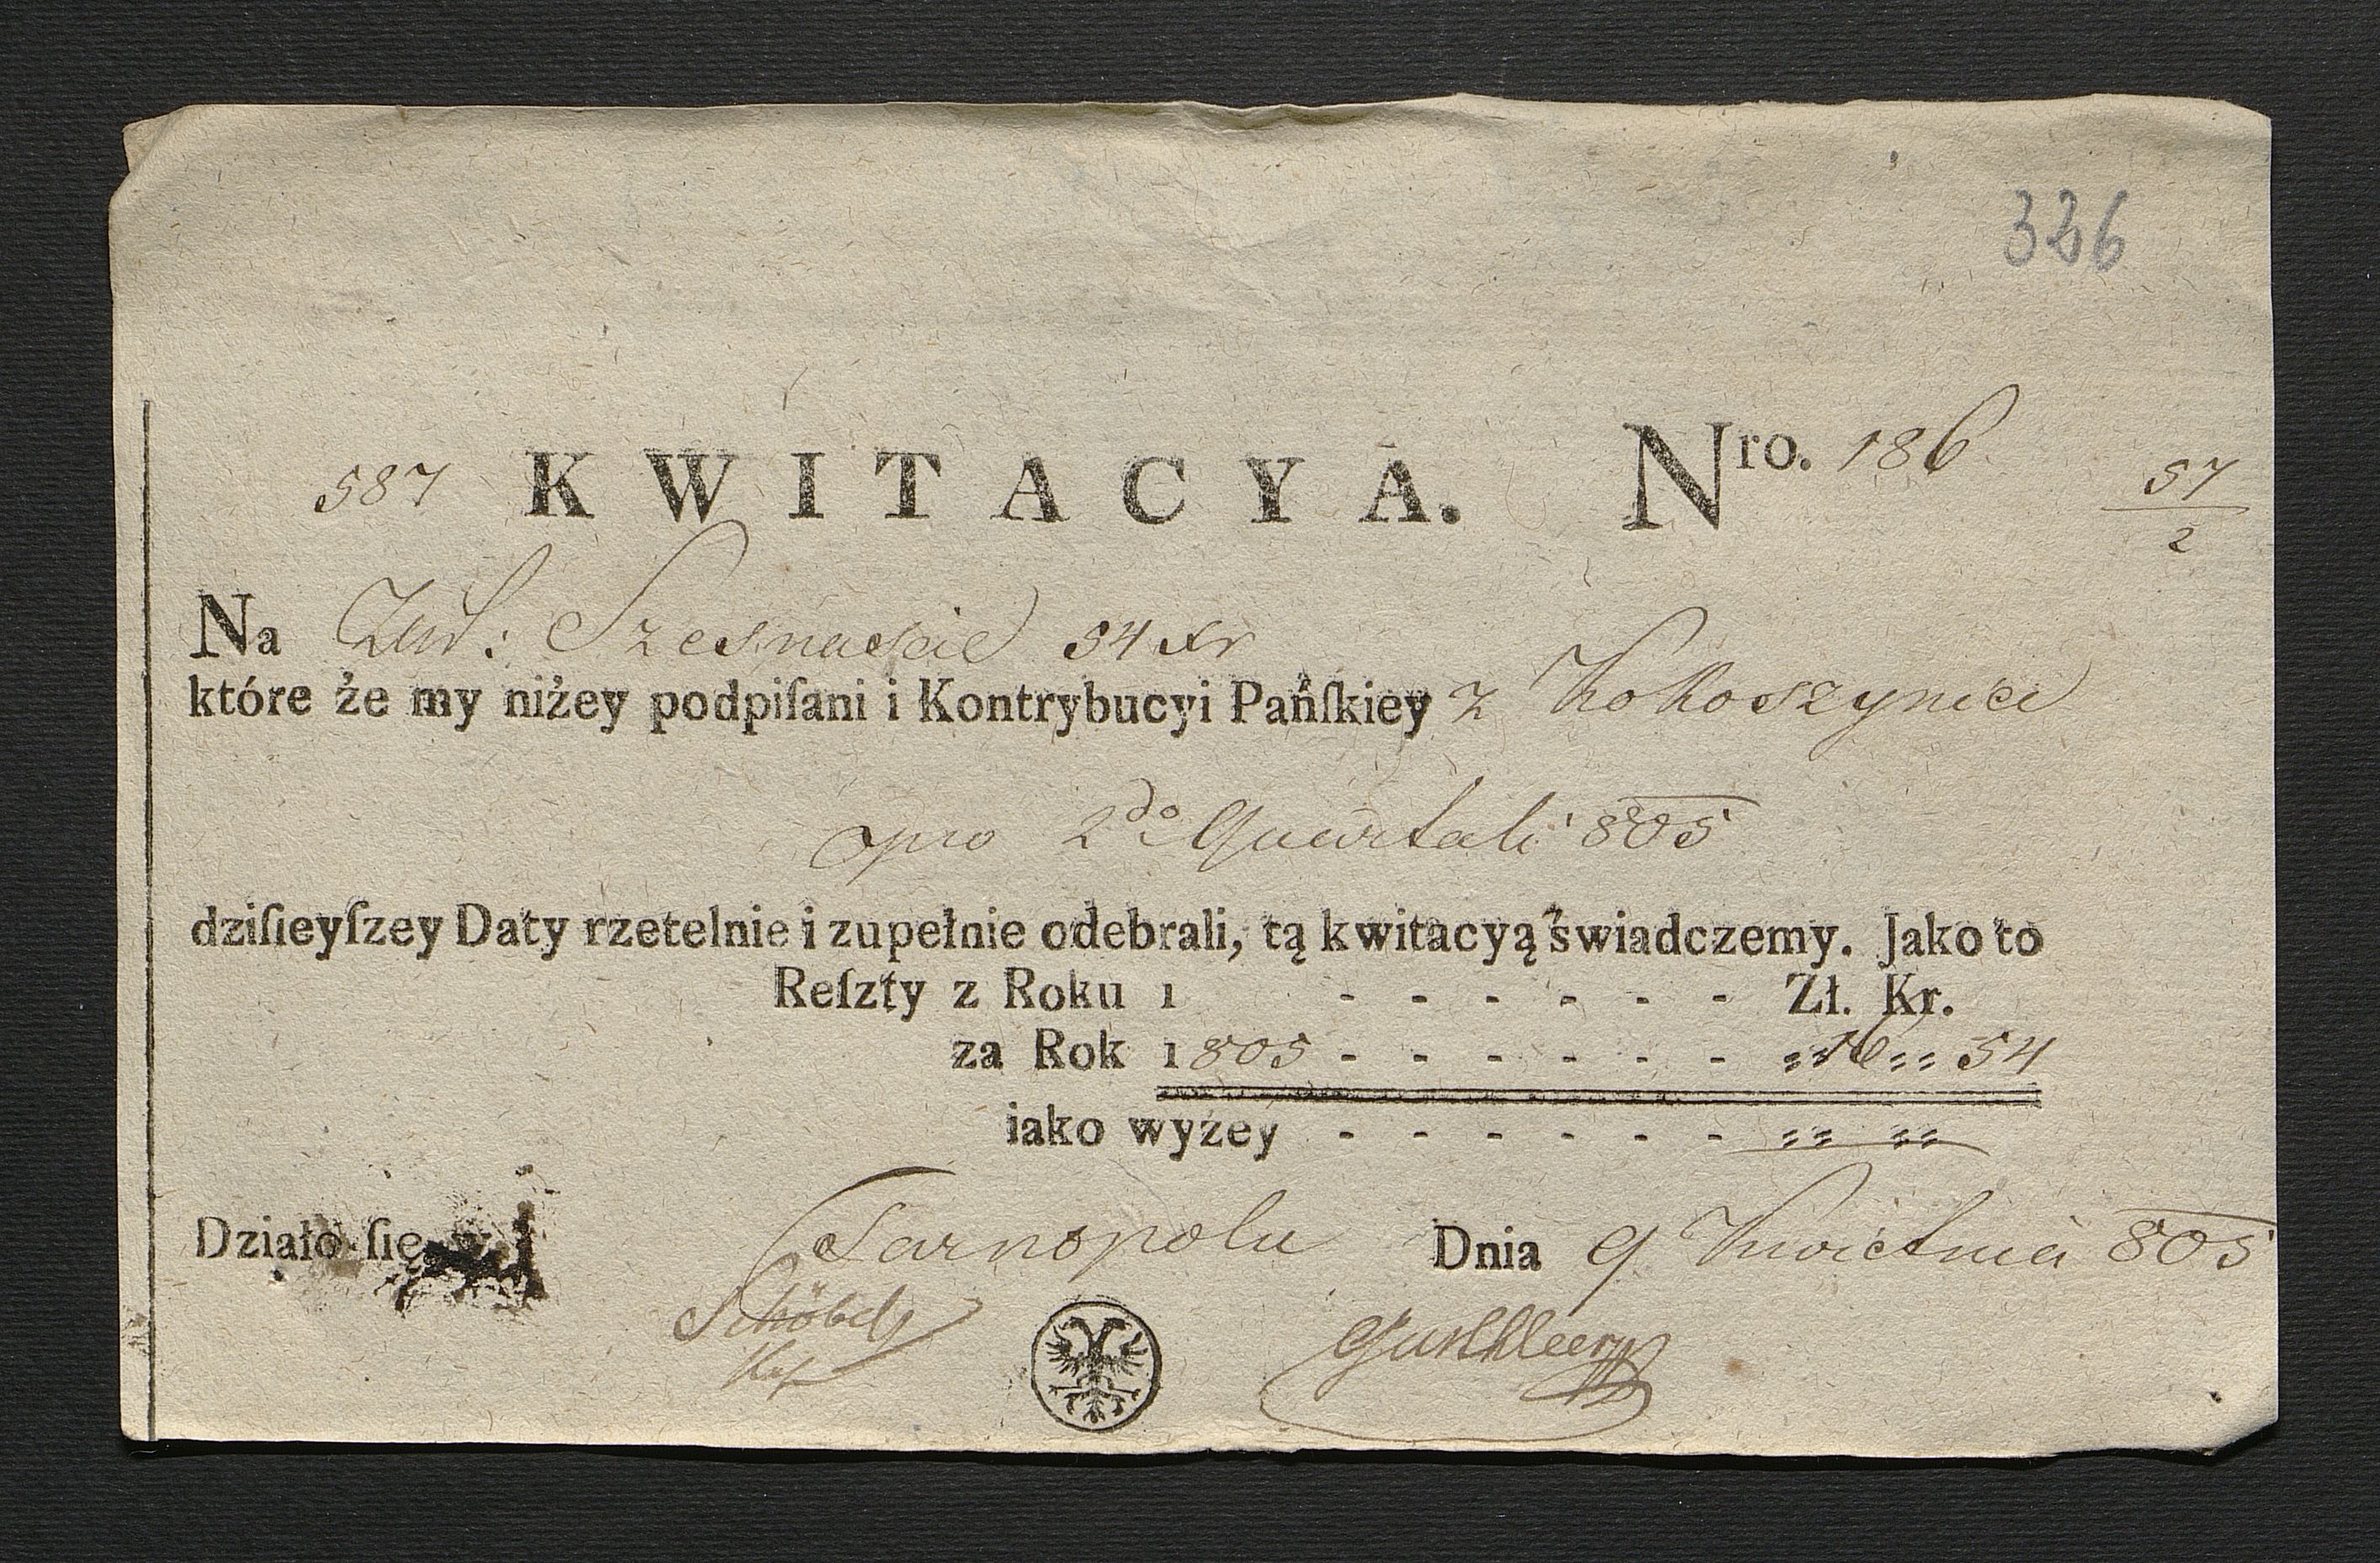 326
587 KWITACYA. Nro. 186 57/2
Na Zło: Szesnascie 54 xr
które że my niżey podpiſani i Kontrybucyi Pańſkiey z Kokoszyniec
pro 2do Quartali 805
dziſieyſzey Daty rzetelnie i zupełnie odebrali, tą kwitacyą świadczemy. Jako to
Reſzty z Roku 1 - - - - - - Zł. Kr.
za Rok 1805 - - - - - - „ 16 „ 54
iako wyżey - - - - - - „ „
Działo ſię w Tarnopolu Dnia 9 Kwietnia 805
Schöbel